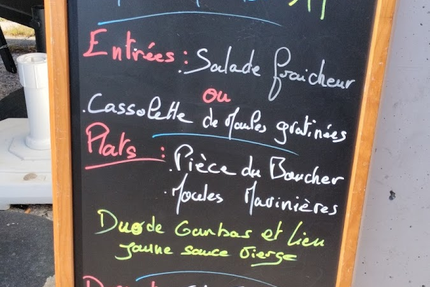 Entrées : . Salade fraicheur
ou
. Cassolette de Moules gratinées
Plats : . Pièce du Boucher
. Moules Marinières
Duo de Gambas et Lieu
jaune sauce vierge